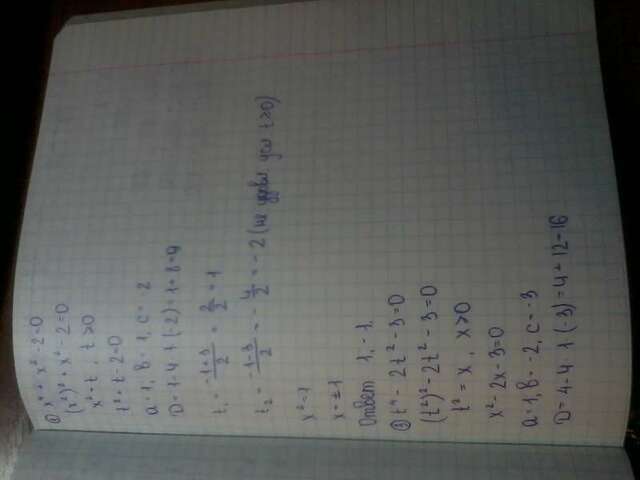 ① x⁴ + x² - 2 = 0
(x²)² + x² - 2 = 0
x² = t, t > 0
t² + t - 2 = 0
a = 1, b = 1, c = -2
D = 1 - 4 · 1 (-2) = 1 + 8 = 9
t₁ = (-1+3)/2 = 2/2 = 1
t₂ = (-1-3)/2 = -4/2 = -2 (не удовл. усл t > 0)
x² = 1
x = ±1
Ответ 1, -1.
② t⁴ - 2t² - 3 = 0
(t²)² - 2t² - 3 = 0
t² = x, x > 0
x² - 2x - 3 = 0
a = 1, b = -2, c = -3
D = 4 - 4 · 1 (-3) = 4 + 12 = 16